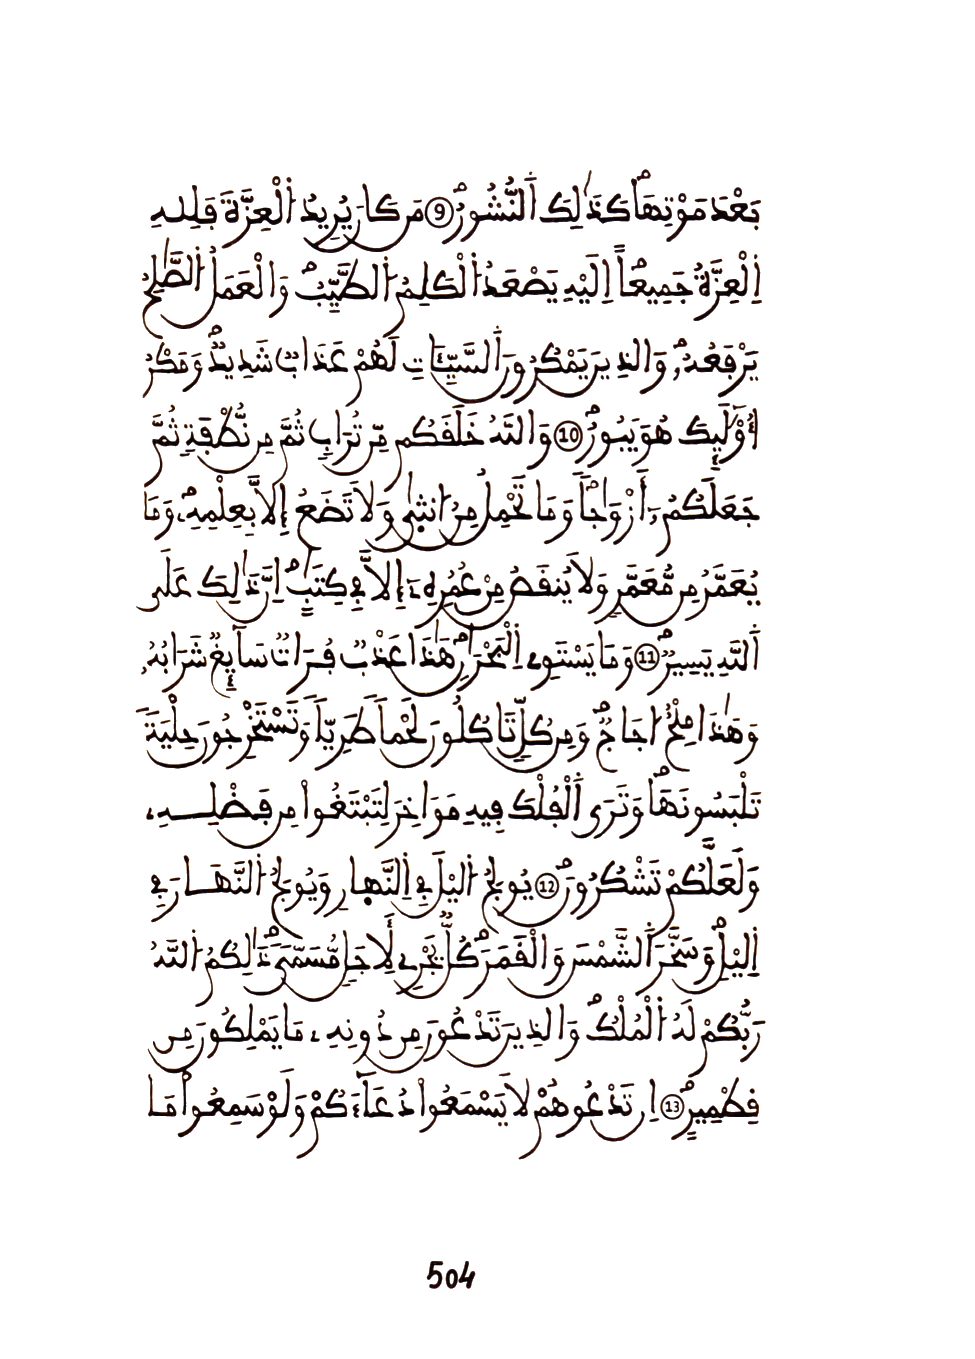 بَعْدَ مَوْتِهَاۖ كَذَٰلِكَ اَ۬لنُّشُورُۖ ⑨ مَن كَانَ يُرِيدُ اُ۬لْعِزَّةَ فَلِلهِ
اِ۬لْعِزَّةُ جَمِيعاًۖ اِلَيْهِ يَصْعَدُ اُ۬لْكَلِمُ اُ۬لطَّيِّبُۖ وَالْعَمَلُ اُ۬لصَّٰلِحُ
يَرْفَعُهُۥۖ وَالذِينَ يَمْكُرُونَ اَ۬لسَّيِّـَٔاتِ لَهُمْ عَذَابٞ شَدِيدٞۖ وَمَكْرُ
أُوْلَٰٓئِكَ هُوَ يَبُورُۖ ⑩ وَاللَّهُ خَلَقَكُم مِّن تُرَابٖ ثُمَّ مِن نُّطْفَةٖ ثُمَّ
جَعَلَكُمُۥٓ أَزْوَٰجاٗۖ وَمَا تَحْمِلُ مِنُ ا۟نث۪ىٰ وَلَا تَضَعُ إِلَّا بِعِلْمِهِۦۖ وَمَا
يُعَمَّرُ مِن مُّعَمَّرٖ وَلَا يُنقَصُ مِنْ عُمُرِهِۦٓ إِلَّا فِے كِتَٰبٍۖ اِنَّ ذَٰلِكَ عَلَى
اَ۬للَّهِ يَسِيرٞۖ ⑪ وَمَا يَسْتَوِے اِ۬لْبَحْرَٰنِۖ هَٰذَا عَذْبٞ فُرَاتٞ سَآئِغٞ شَرَابُهُۥ
وَهَٰذَا مِلْحٌ ا۟جَاجٞۖ وَمِن كُلّٖ تَاكُلُونَ لَحْماٗ طَرِيّاٗ وَتَسْتَخْرِجُونَ حِلْيَةٗ
تَلْبَسُونَهَاۖ وَتَرَى اَ۬لْفُلْكَ فِيهِ مَوَاخِرَ لِتَبْتَغُواْ مِن فَضْلِهِۦ
وَلَعَلَّكُمْ تَشْكُرُونَۖ ⑫ يُولِجُ اُ۬ليْلَ فِے اِ۬لنَّه۪ارِ وَيُولِجُ اُ۬لنَّهَارَ فِے
اِ۬ليْلِۖ وَسَخَّرَ اَ۬لشَّمْسَ وَالْقَمَرَۖ كُلّٞ يَجْرِے لِأَجَلٖ مُّسَمّىٗۖ ذَٰلِكُمُ اُ۬للَّهُ
رَبُّكُمْ لَهُ اُ۬لْمُلْكُۖ وَالذِينَ تَدْعُونَ مِن دُونِهِۦ مَا يَمْلِكُونَ مِن
قِطْمِيرٍۖ ⑬ اِن تَدْعُوهُمْ لَا يَسْمَعُواْ دُعَآءَكُمْ وَلَوْ سَمِعُواْ مَا
504